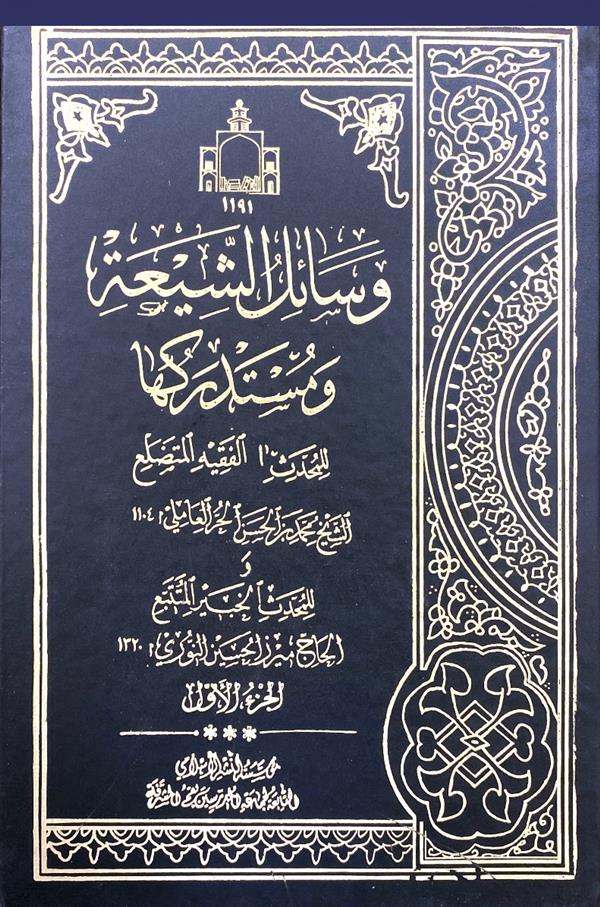 ١١٩١
وَسَائِلُ الشِّيعَة
وَمُسْتَدْرَكُها
للمحدث الفقيه المتضلع
الشيخ محمد بن الحسن الحر العاملي ١١٠٤
و
للمحدث الخبير المتتبع
الحاج ميرزا حسين النوري ١٣٢٠
الجزء الأول
مؤسسة النشر الإسلامي
التابعة لجماعة المدرسين بقم المشرفة